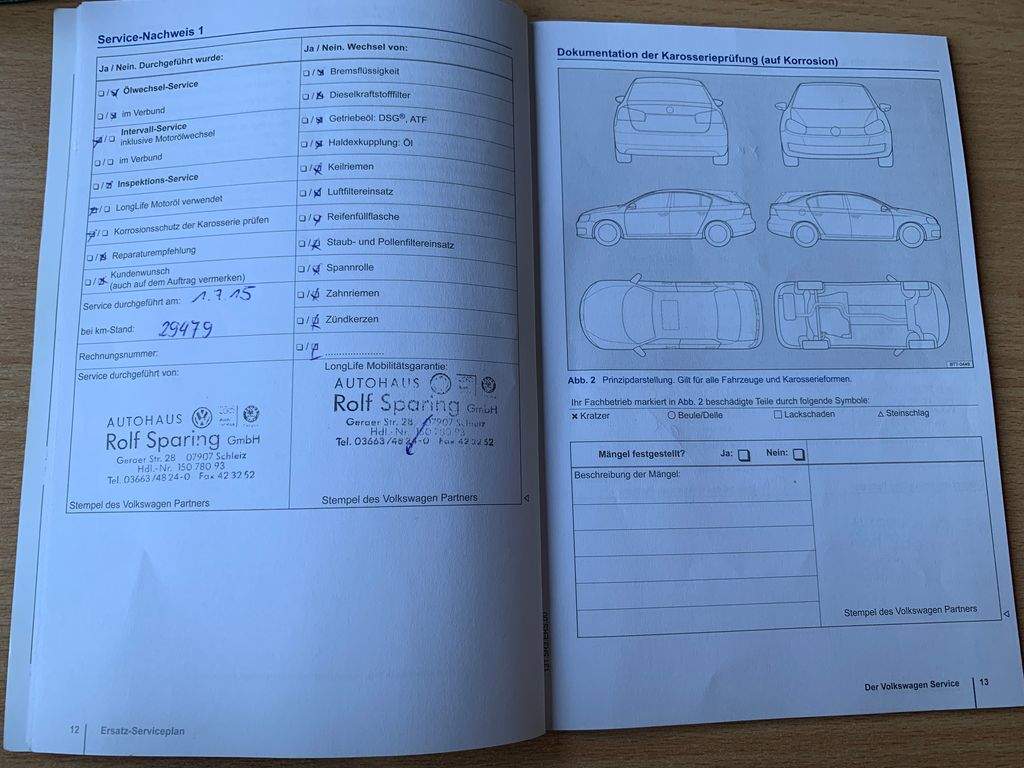 Service-Nachweis 1
Ja / Nein. Durchgeführt wurde:
Ölwechsel-Service
im Verbund
Intervall-Service
inklusive Motorölwechsel
im Verbund
Inspektions-Service
LongLife Motoröl verwendet
Korrosionsschutz der Karosserie prüfen
Reparaturempfehlung
Kundenwunsch
(auch auf dem Auftrag vermerken)
Service durchgeführt am: 1.7.15
bei km-Stand: 29479
Rechnungsnummer:
Service durchgeführt von:
AUTOHAUS
Rolf Sparing GmbH
Geraer Str. 28 07907 Schleiz
Hdl.-Nr. 150 780 93
Tel. 03663/48 24-0 Fax 42 32 52
Stempel des Volkswagen Partners
Ja / Nein. Wechsel von:
Bremsflüssigkeit
Dieselkraftstofffilter
Getriebeöl: DSG®, ATF
Haldexkupplung: Öl
Keilriemen
Luftfiltereinsatz
Reifenfüllflasche
Staub- und Pollenfiltereinsatz
Spannrolle
Zahnriemen
Zündkerzen
LongLife Mobilitätsgarantie:
AUTOHAUS
Rolf Sparing GmbH
Geraer Str. 28 07907 Schleiz
Hdl.-Nr. 150 780 93
Tel. 03663/48 24-0 Fax 42 32 52
Stempel des Volkswagen Partners
12 Ersatz-Serviceplan
Dokumentation der Karosserieprüfung (auf Korrosion)
B7T-0449
Abb. 2 Prinzipdarstellung. Gilt für alle Fahrzeuge und Karosserieformen.
Ihr Fachbetrieb markiert in Abb. 2 beschädigte Teile durch folgende Symbole:
× Kratzer ○ Beule/Delle □ Lackschaden △ Steinschlag
Mängel festgestellt? Ja: Nein:
Beschreibung der Mängel:
Stempel des Volkswagen Partners
Der Volkswagen Service 13